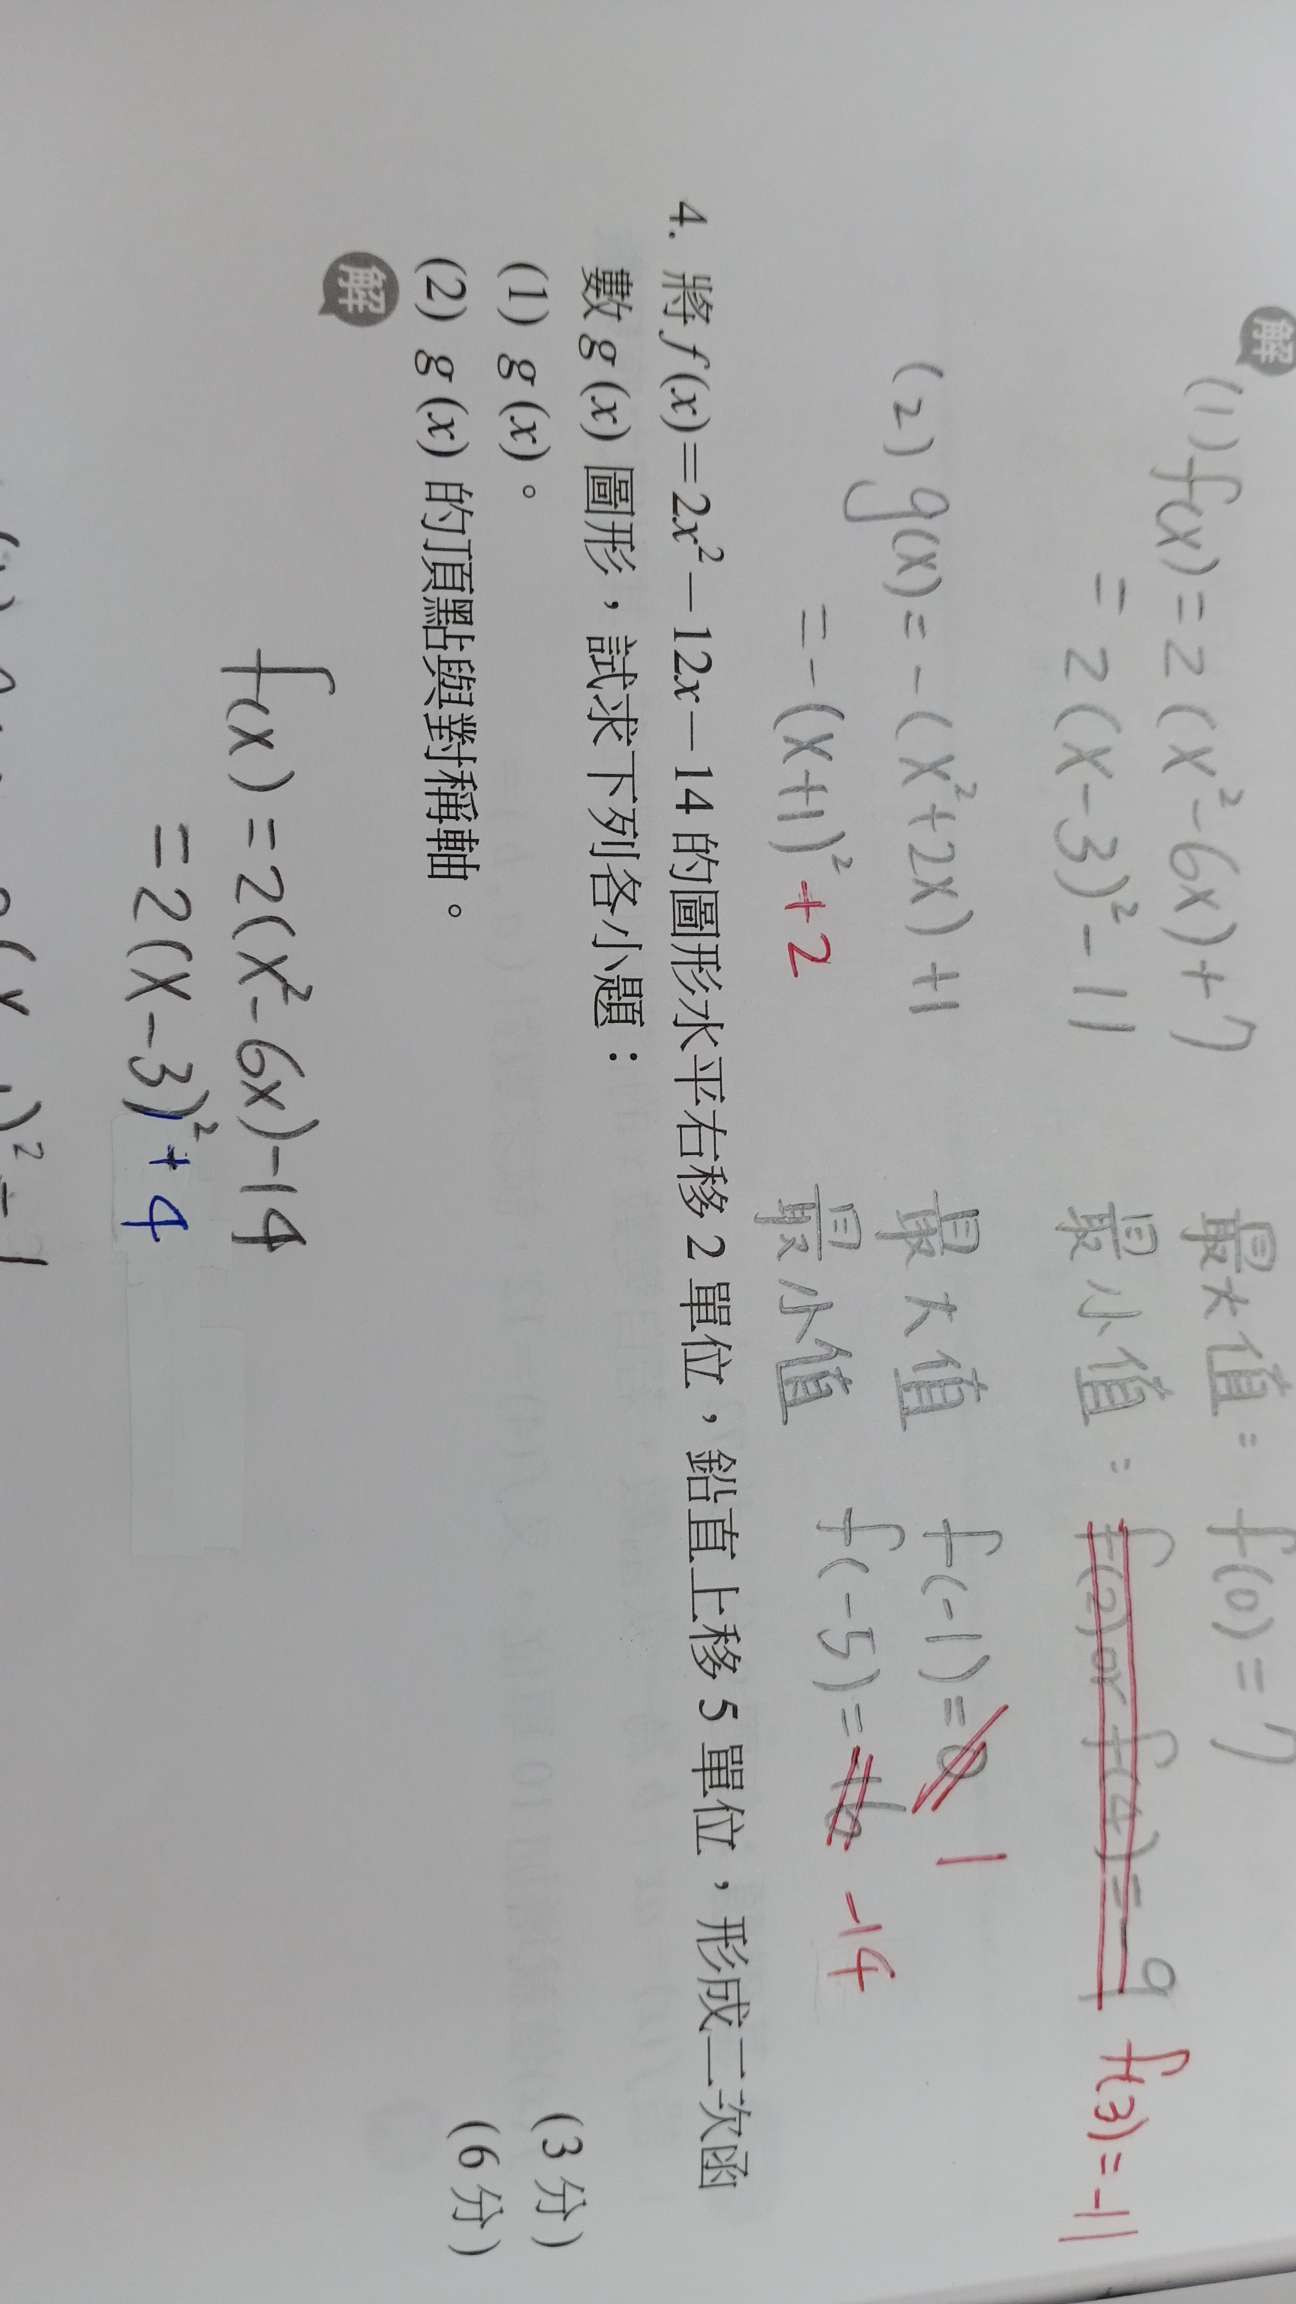 解
(1) f(x)=2(x²-6x)+7 最大值: f(0)=7
=2(x-3)²-11 最小值: f(2)or f(4)=-9 f(3)=-11
(2) g(x)=-(x²+2x)+1 最大值 f(-1)=0 1
=-(x+1)²+2 最小值 f(-5)=-16 -14
4. 將 f(x)=2x²-12x-14 的圖形水平右移 2 單位，鉛直上移 5 單位，形成二次函
數 g(x) 圖形，試求下列各小題：
(1) g(x)。 (3分)
(2) g(x) 的頂點與對稱軸。 (6分)
解
f(x)=2(x²-6x)-14
=2(x-3)²+4